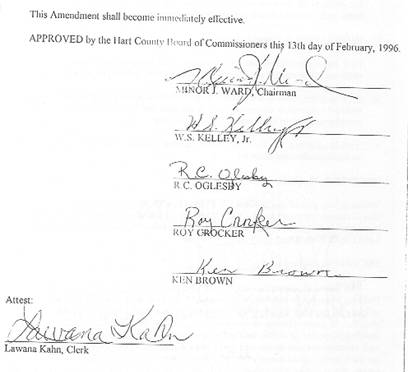 This Amendment shall become immediately effective.
APPROVED by the Hart County Board of Commissioners this 13th day of February, 1996.
MINOR J. WARD, Chairman
W.S. Kelley Jr
W.S. KELLEY, Jr.
R.C. Oglesby
R.C. OGLESBY
Roy Crocker
ROY CROCKER
Ken Brown
KEN BROWN
Attest:
Lawana Kahn
Lawana Kahn, Clerk